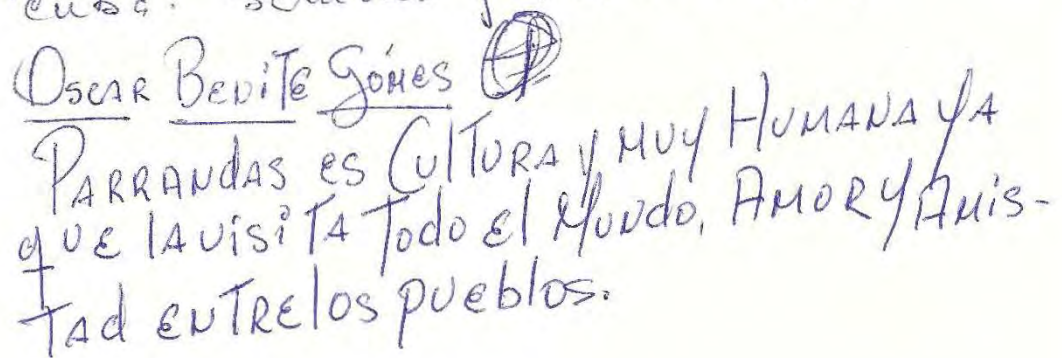 Oscar Benite Gómes
Parrandas es Cultura y muy Humana ya
que la visita Todo el Mundo. Amor y Amis-
tad entre los pueblos.